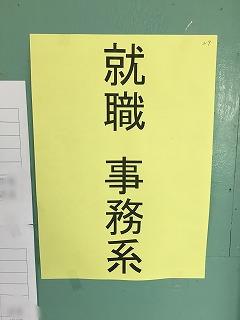 就職 事務系